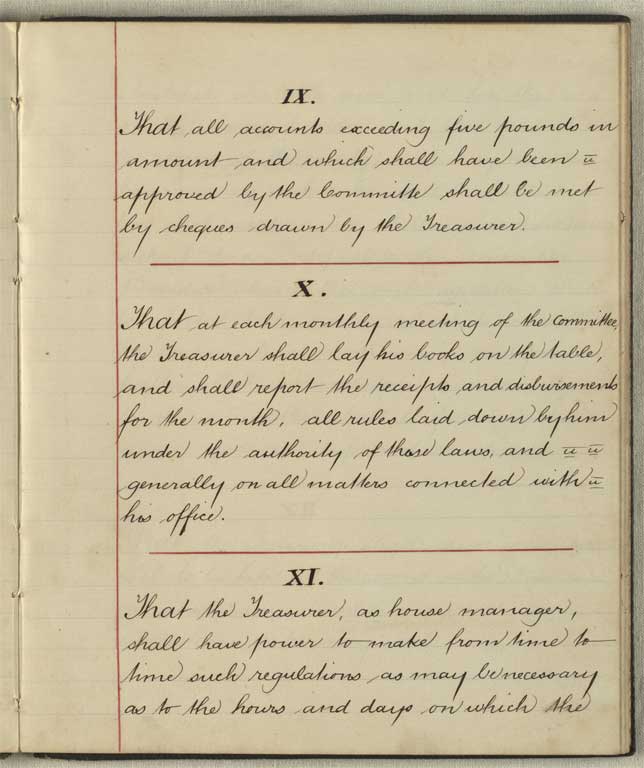 IX.
That all accounts exceeding five pounds in
amount and which shall have been
approved by the Committe shall be met
by cheques drawn by the Treasurer.
X.
That at each monthly meeting of the Committee,
the Treasurer shall lay his books on the table,
and shall report the receipts and disbursements
for the month, all rules laid down by him
under the authority of these laws, and
generally on all matters connected with
his office.
XI.
That the Treasurer, as house manager,
shall have power to make from time to
time such regulations as may be necessary
as to the hours and days on which the